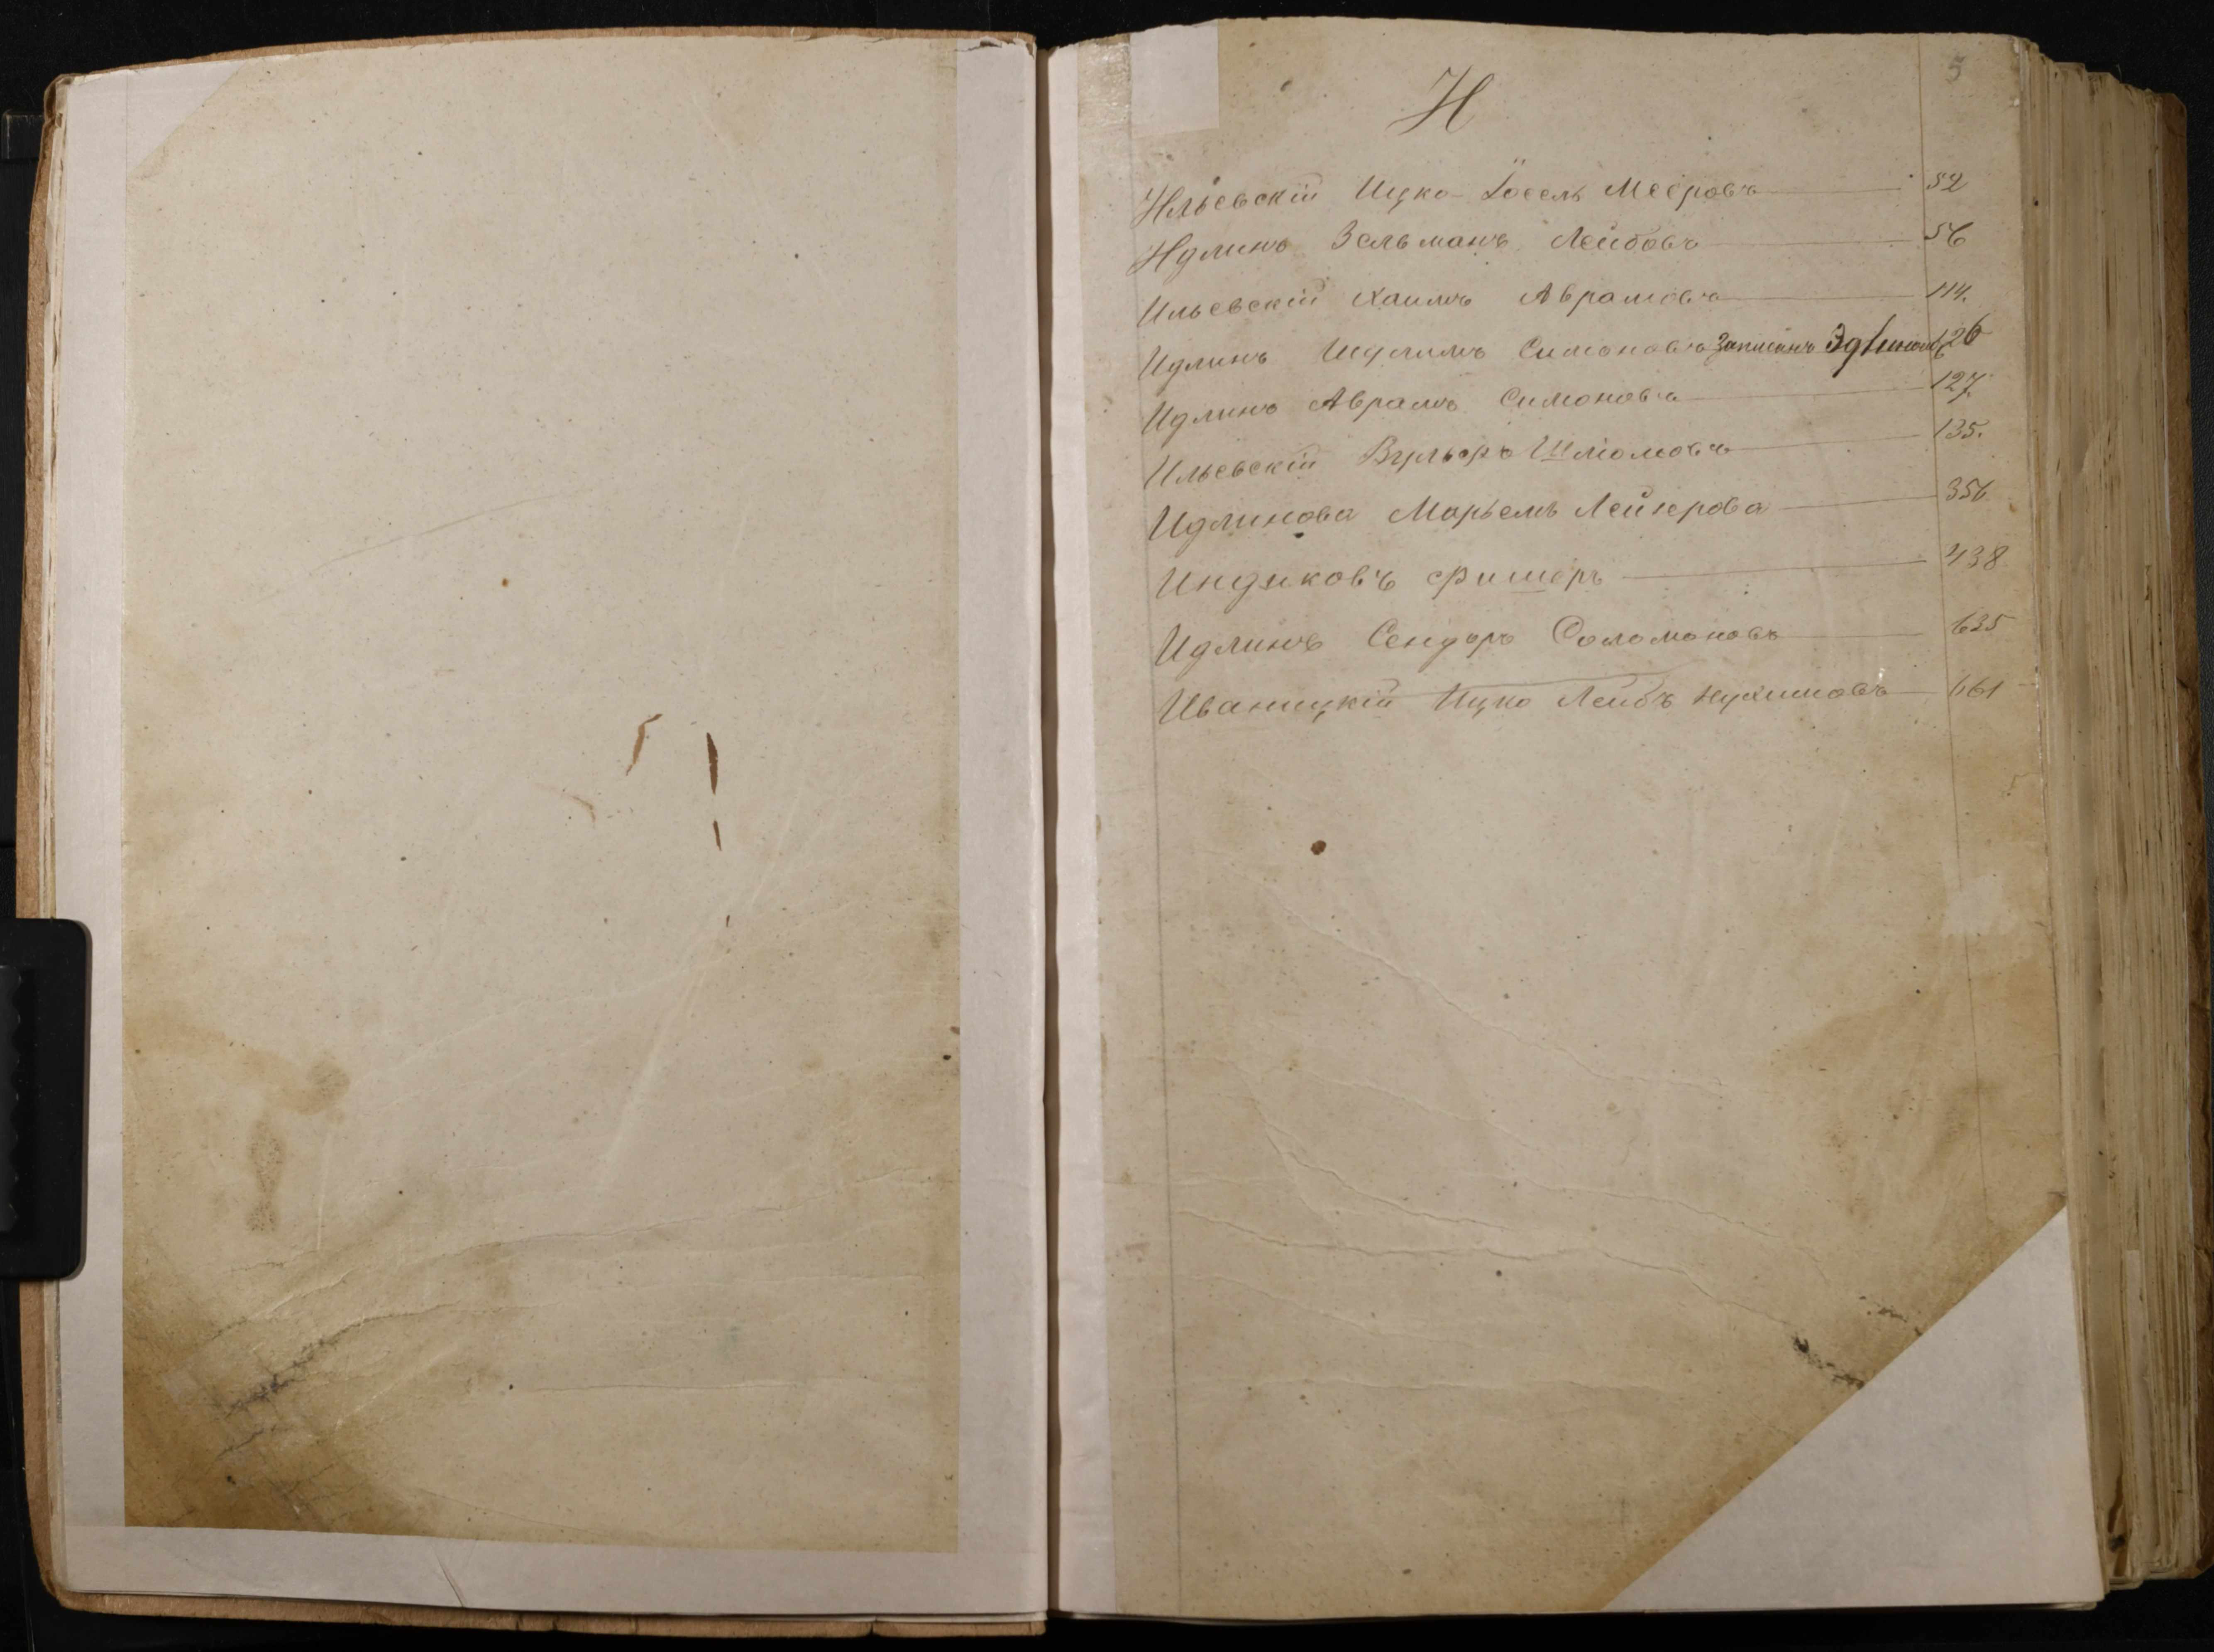 5
И
Ильевскій Ицко-Іосель Мееровъ 52
Идлинъ Зельманъ Лейбовъ 56
Ильевскій Хаимъ Аврамовъ 114.
Идлинъ Симоновъ Записанъ 126
Идлинъ Аврамъ Симоновъ 127.
Ильевскій Вульфъ Шломовъ 135.
Идлинова Марьемъ Лейзерова 356
Индиковъ Фишеръ 438
Идлинъ Сендеръ Соломоновъ 635
Иваницкій Ицко Лейбъ Нухимовъ 661